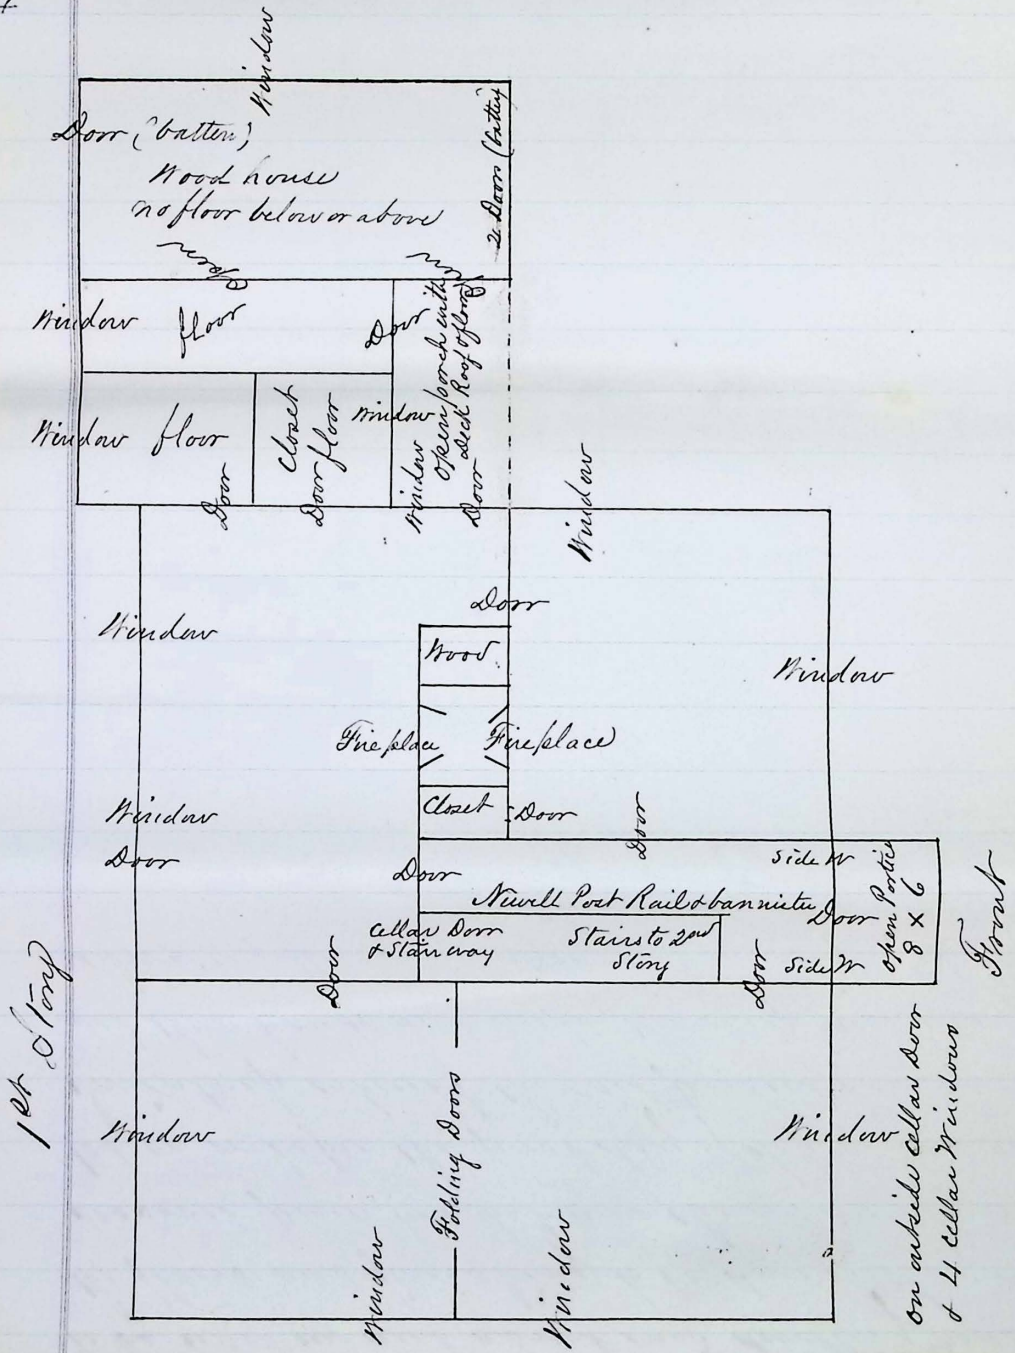 1st Story
Window
Door (batten)
Wood house
no floor below or above
2 Doors (batten)
Open
Open
Window
floor
Door
open porch with
Deck Roof & floor
Window floor
Closet
Door floor
Window
Door
Window
Door
Window
Window
Door
Wood
Window
Fireplace
Fireplace
Window
Closet
Door
Door
Door
Door
Side W
Newell Post Rail & bannister
Door
open Portico
8 x 6
Front
Cellar Door
& Stairway
Stairs to 2nd
Story
Door
Door
Side W
Window
Folding Doors
Window
Window
Window
on outside cellar Door
& 4 cellar Windows